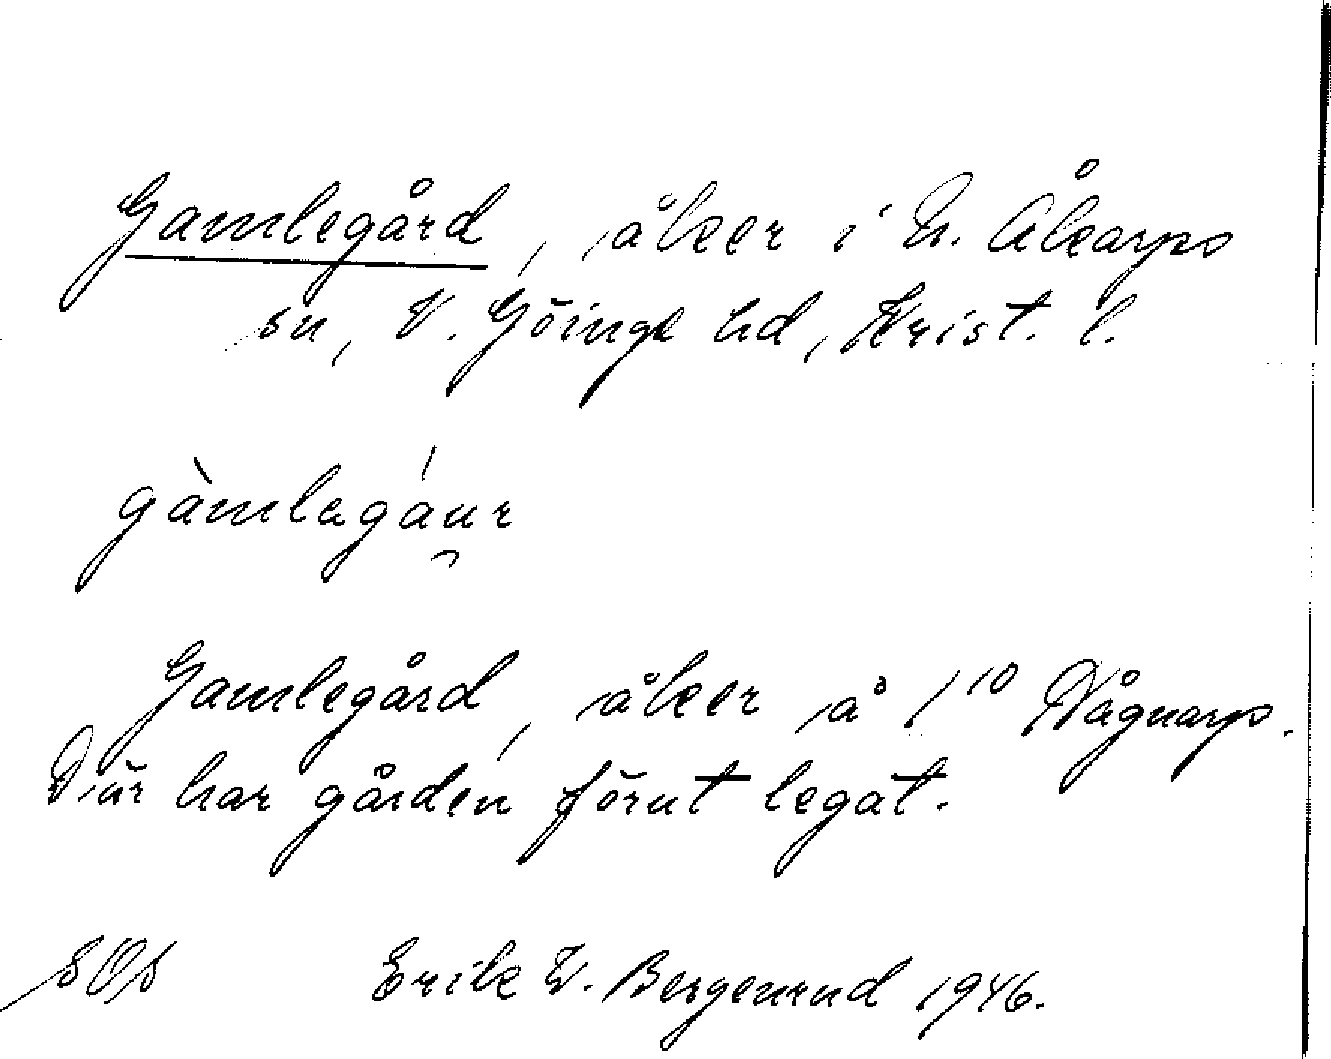 Gamlegård, åker i N. Åkarps
sn, V. Göinge hd, Krist. l.
gàmlagáu̯r
Gamlegård, åker å 1¹⁰ Vågnarp.
Där har gården förut legat.
SOS Erik W. Bergenrud 1946.